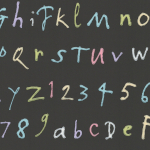 G h i F k l M n o
P Q R S T U V W
x y Z 1 2 3 4 5 6
7 8 9 a b c D e F